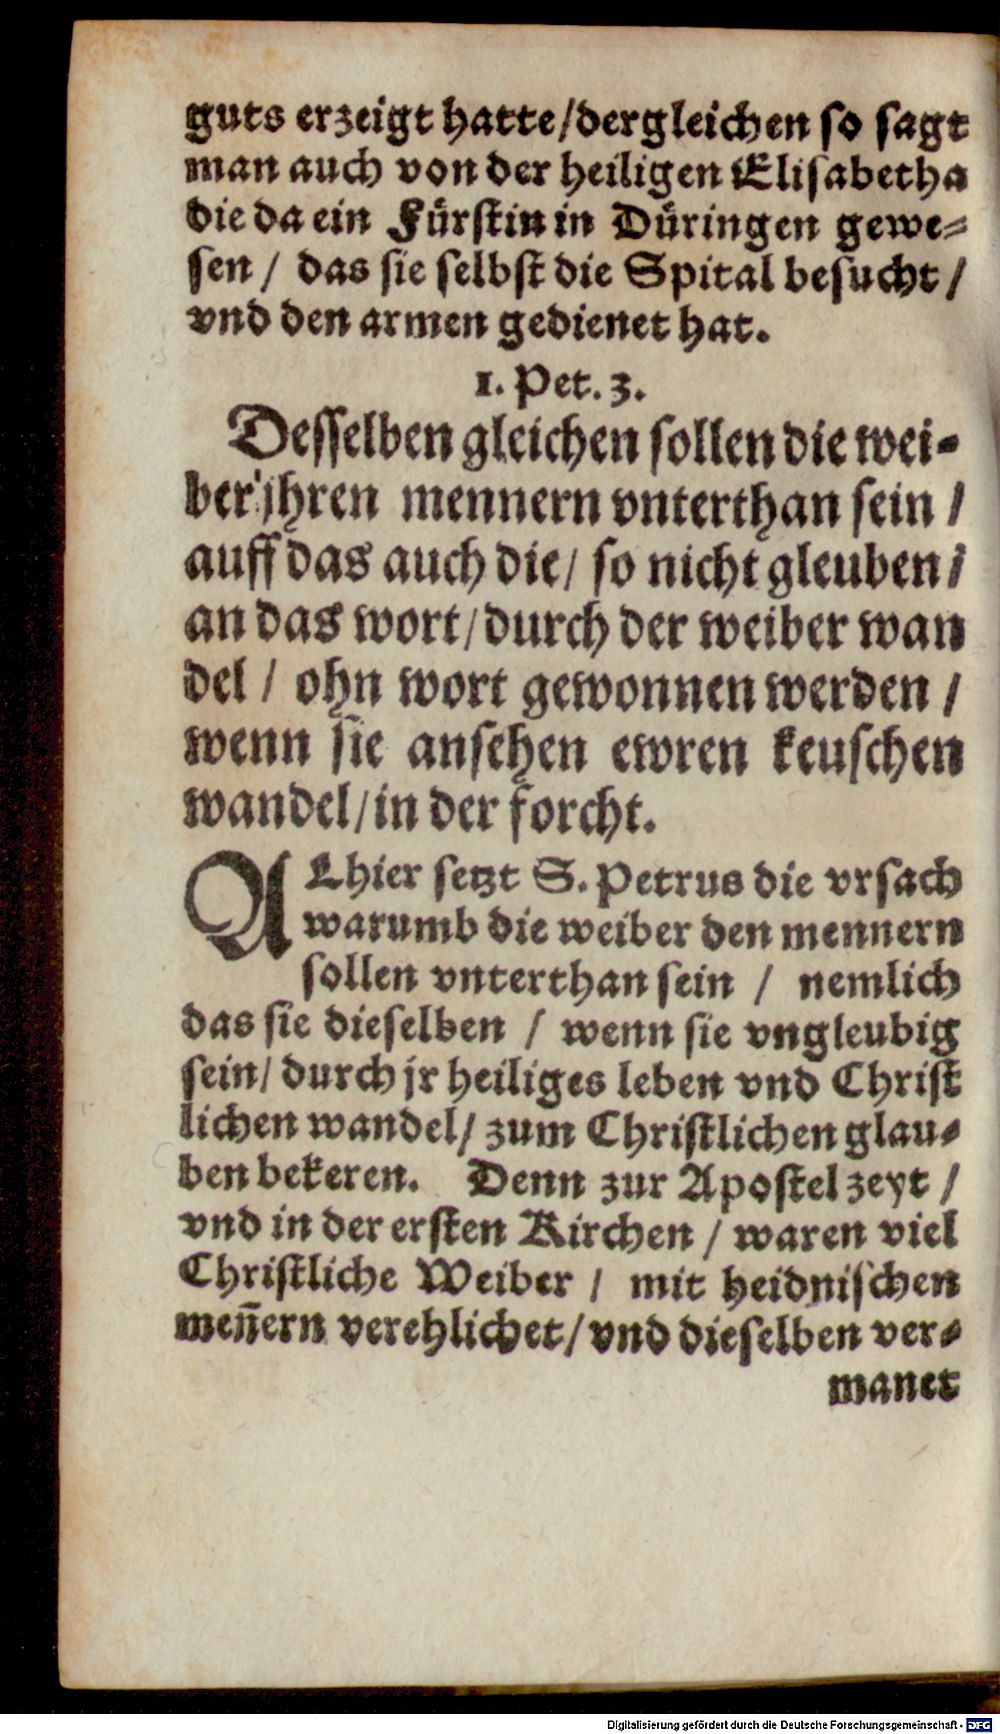 guts erzeigt hatte/dergleichen so sagt
man auch von der heiligen Elisabetha
die da ein Fürstin in Düringen gewe-
sen / das sie selbst die Spital besucht /
vnd den armen gedienet hat.
1. Pet. 3.
Desselben gleichen sollen die wei-
ber jhren mennern vnterthan sein /
auff das auch die/ so nicht gleuben/
an das wort/durch der weiber wan
del / ohn wort gewonnen werden /
wenn sie ansehen ewren keuschen
wandel/in der forcht.
ALhier setzt S. Petrus die vrsach
warumb die weiber den mennern
sollen vnterthan sein / nemlich
das sie dieselben / wenn sie vngleubig
sein/ durch jr heiliges leben vnd Christ
lichen wandel/ zum Christlichen glau-
ben bekeren. Denn zur Apostel zeyt /
vnd in der ersten Kirchen / waren viel
Christliche Weiber / mit heidnischen
meñern verehlichet/ vnd dieselben ver-
manet
Digitalisierung gefördert durch die Deutsche Forschungsgemeinschaft - DFG